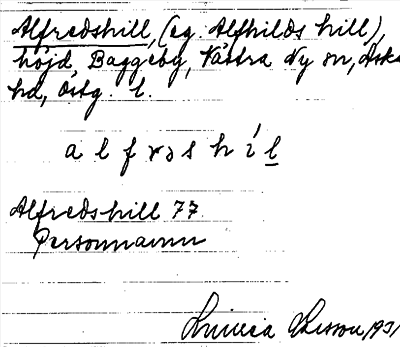 Alfredshill, (eg. Alfhilds hill),
höjd, Baggeby, Västra Ny sn, Aska
hd, Östg. l.
a l f rə s h í l
Alfredshill 77.
Personnamn
1931